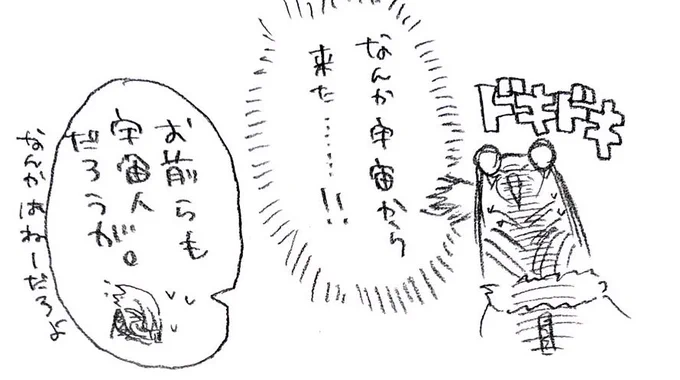 ドキドキ
なんか宇宙から
来た……!!
お前らも
宇宙人
だろうが。
なんかはねーだろよ